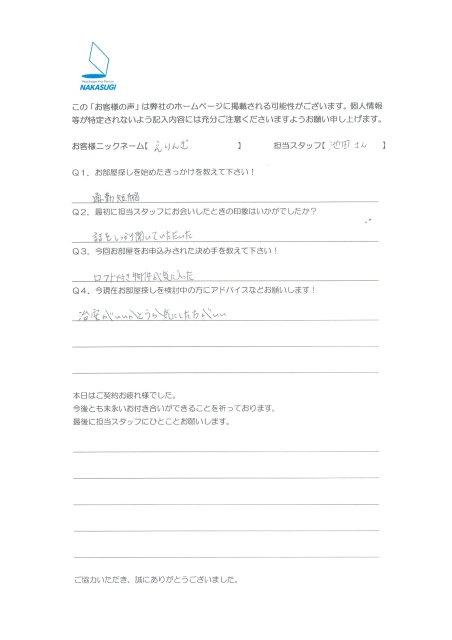 NAKASUGI
この「お客様の声」は弊社のホームページに掲載される可能性がございます。個人情報
等が特定されないよう記入内容には充分ご注意くださいますようお願い申し上げます。
お客様ニックネーム【 えりんぎ 】 担当スタッフ【 池田さん 】
Q1．お部屋探しを始めたきっかけを教えて下さい！
通勤短縮
Q2．最初に担当スタッフにお会いしたときの印象はいかがでしたか？
話をしっかり聞いていただいた
Q3．今回お部屋をお申込みされた決め手を教えて下さい！
ロフト付き物件が気に入った
Q4．今現在お部屋探しを検討中の方にアドバイスなどお願いします！
浴室がいいかどうか気にした方がいい
本日はご契約お疲れ様でした。
今後とも末永いお付き合いができることを祈っております。
最後に担当スタッフにひとことお願いします。
ご協力いただき、誠にありがとうございました。